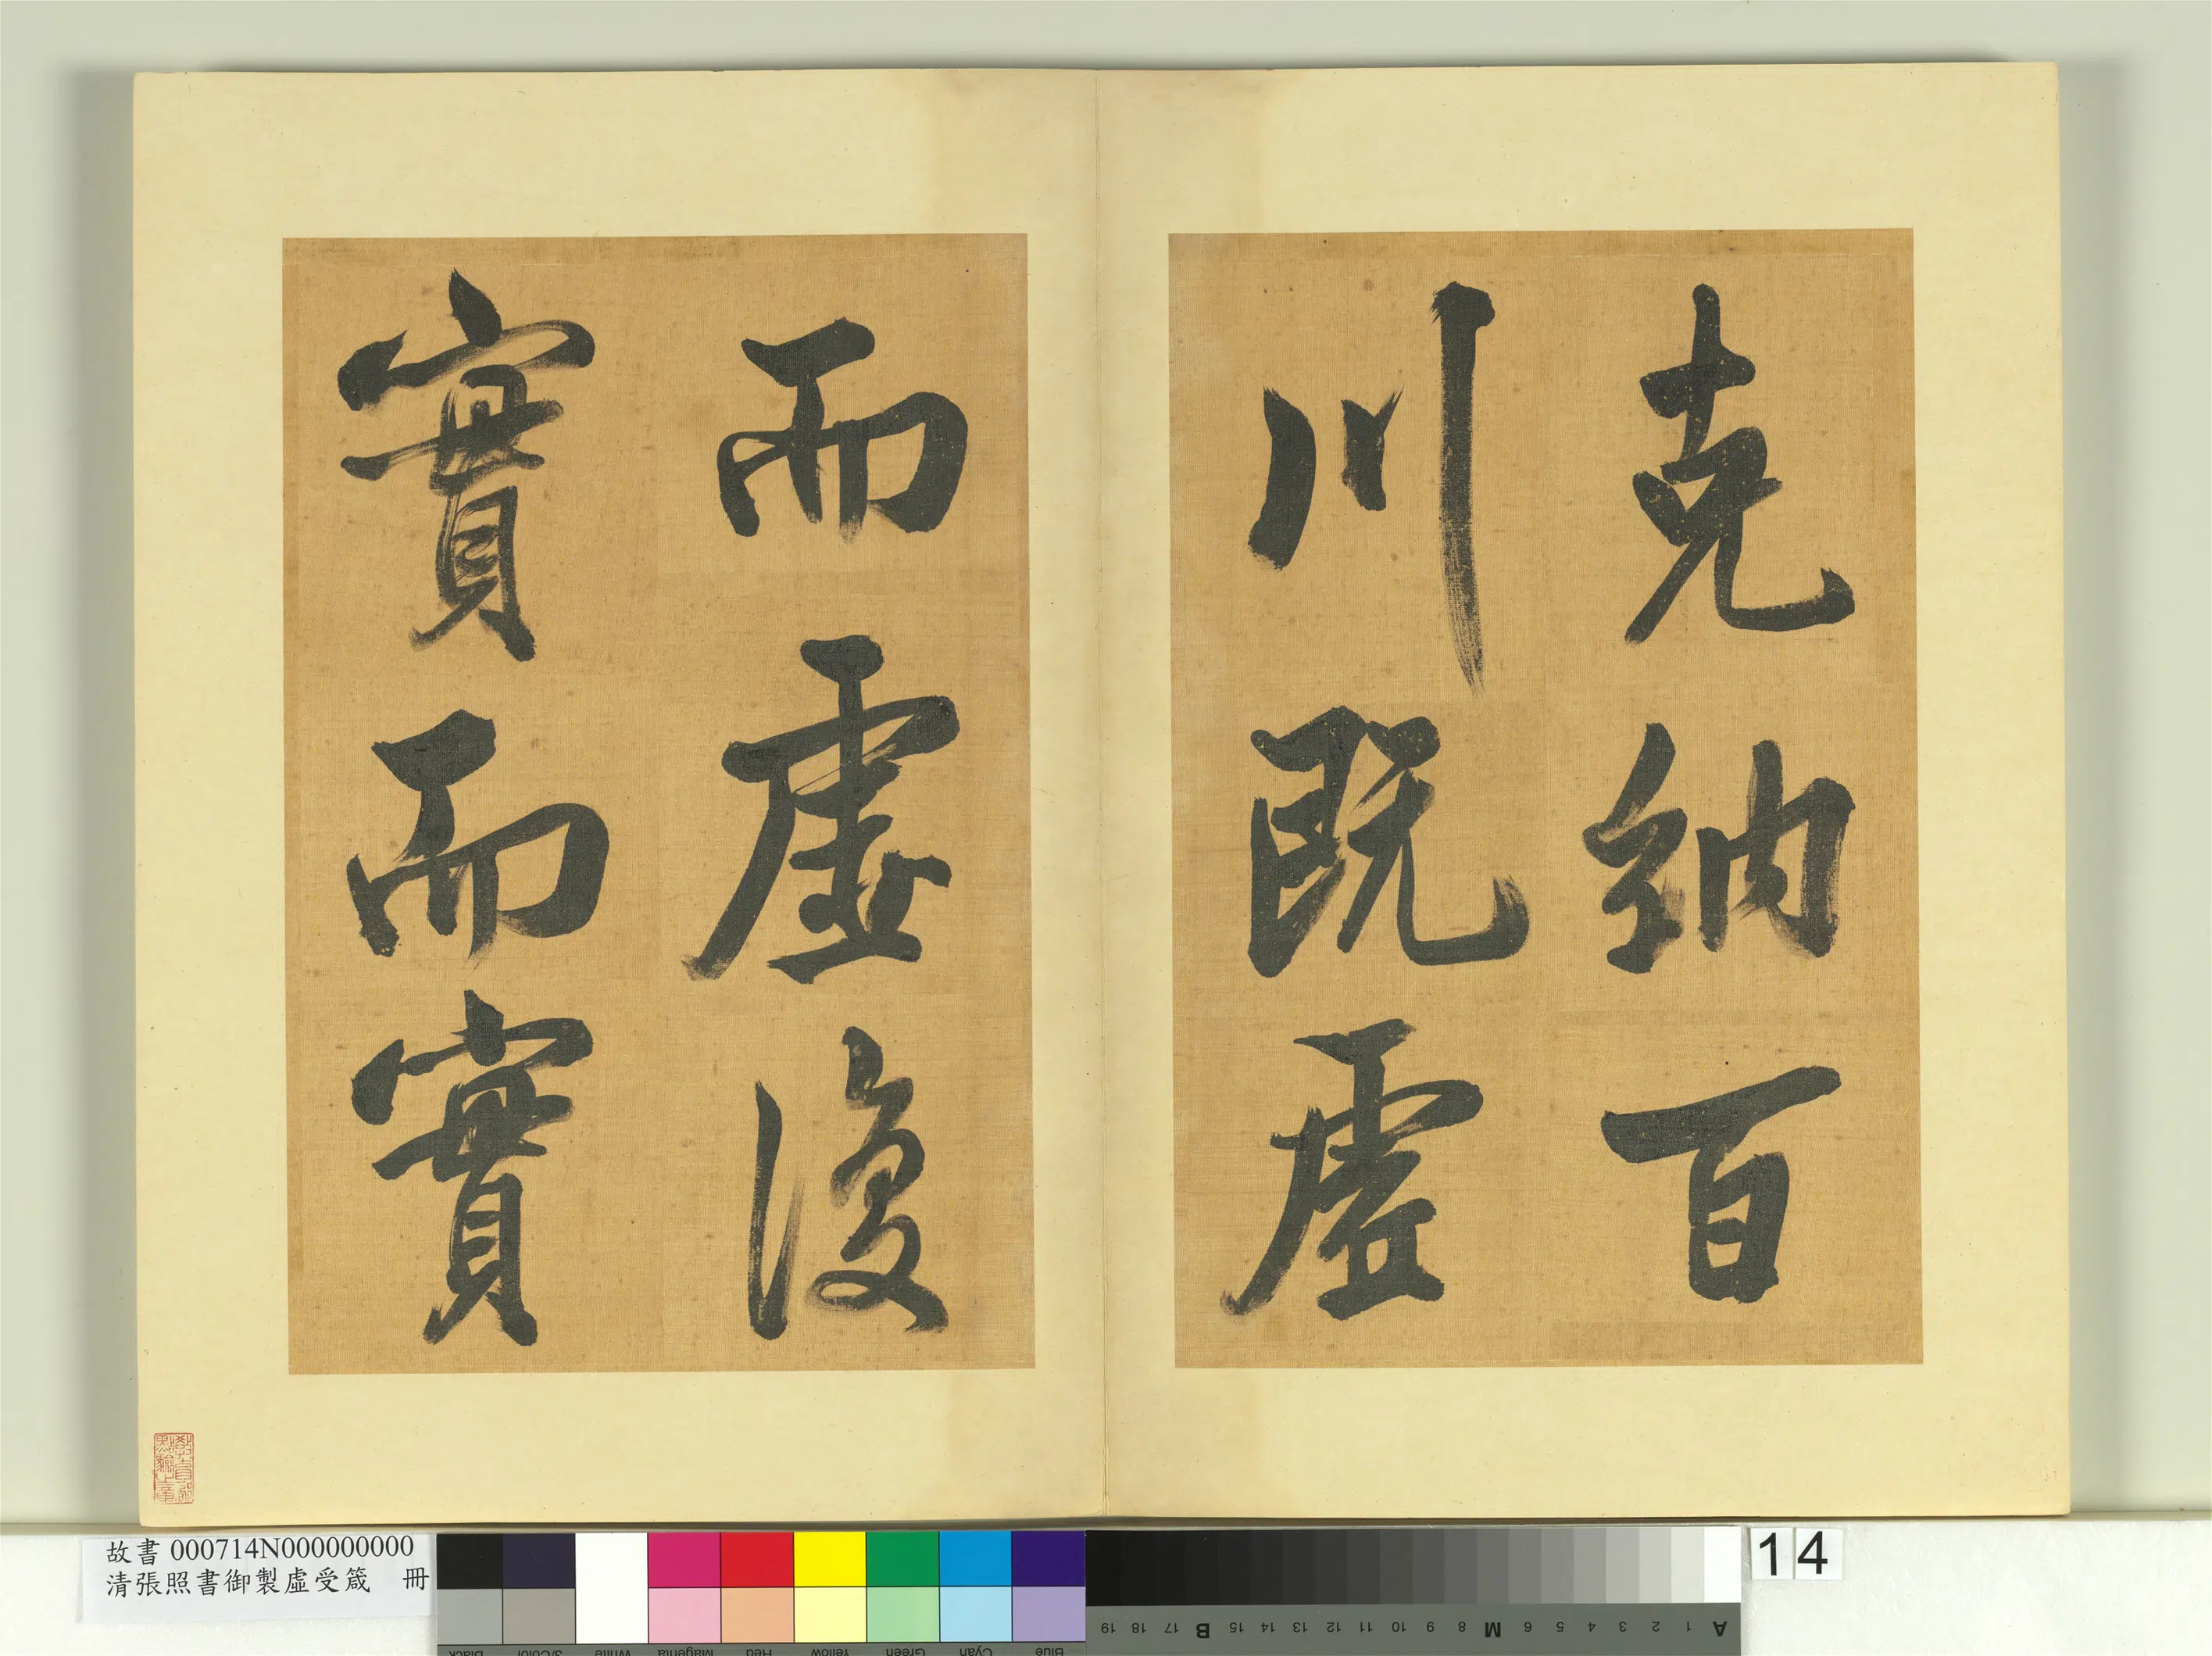 克納百
川既虛
而虛復
實而實
故書 000714N000000000
清張照書御製虛受箴 冊
14
Black
3/Color
White
Magenta
Red
Yellow
Green
Cyan
Blue
19 18 17 B 16 15 14 13 12 11 10 9 8 M 7 6 5 4 3 2 1 A